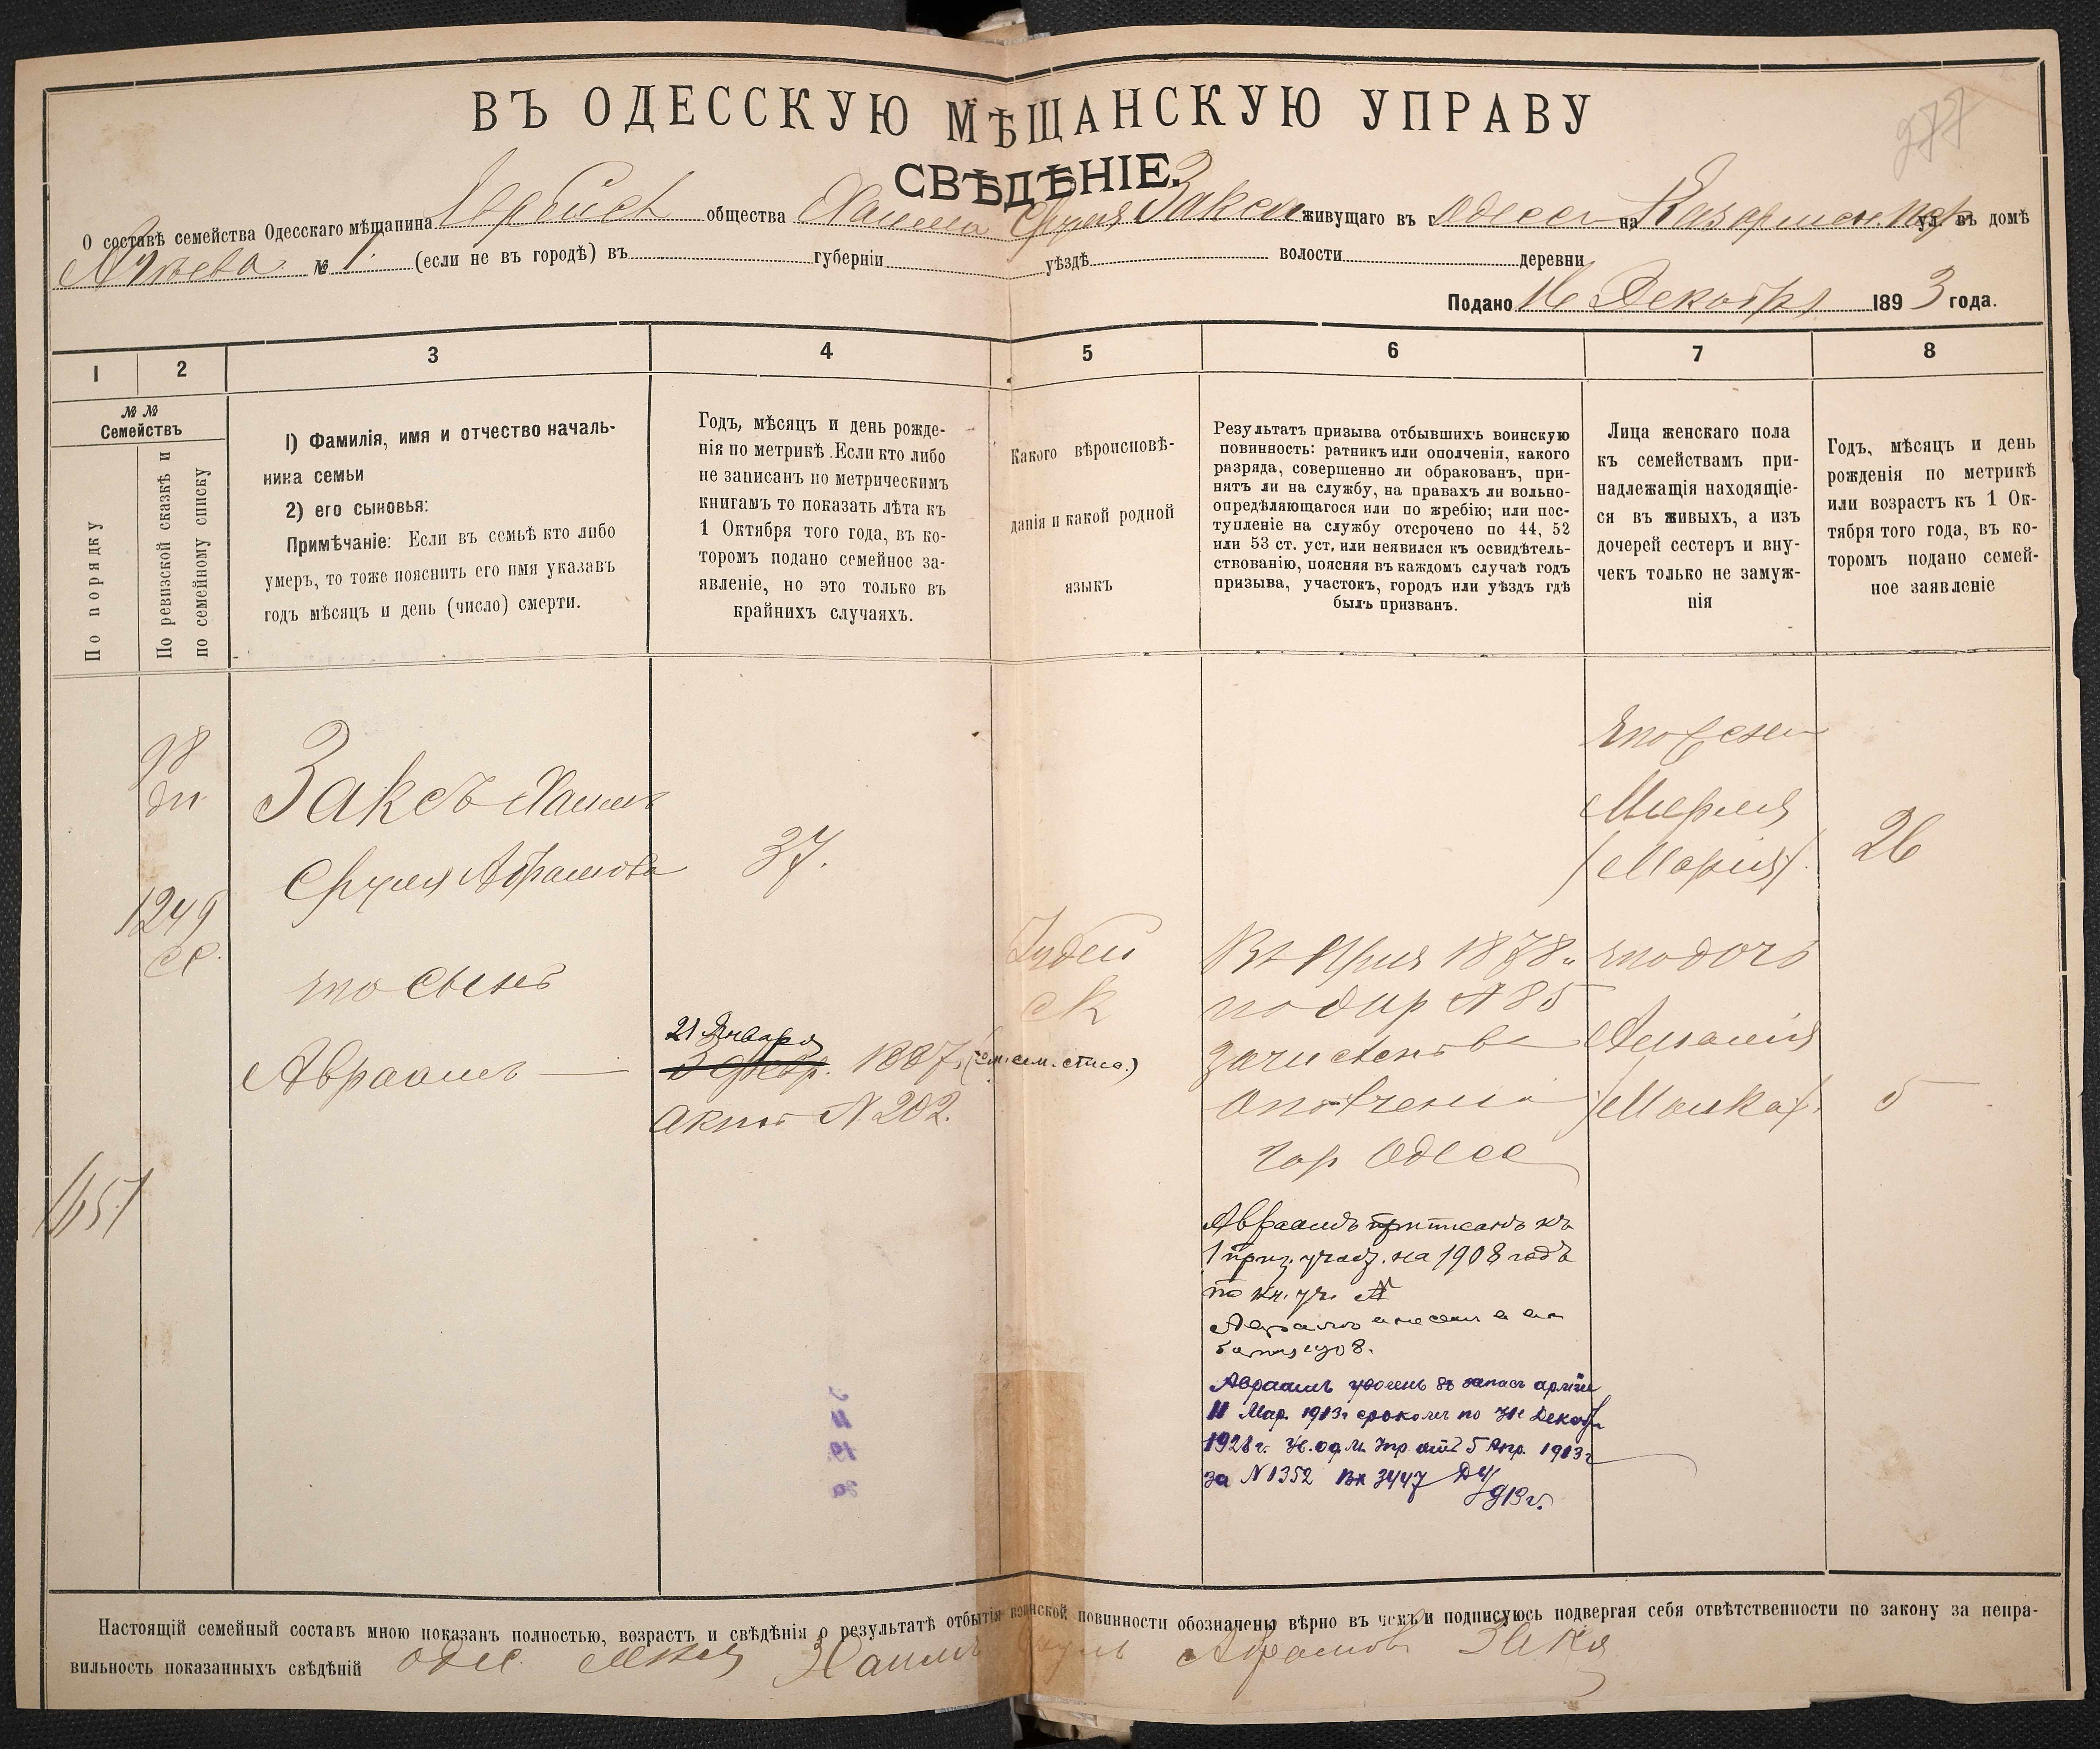 277
ВЪ ОДЕССКУЮ МѢЩАНСКУЮ УПРАВУ
СВѢДѢНІЕ.
О составѣ семейства Одесскаго мѣщанина общества Хаима Сруля Закса живущаго въ г. Одессѣ на Казармен. пер. ул. въ домѣ
№ 1. (если не въ городѣ) въ губерніи уѣздѣ волости деревни
Подано 16 Декабря 1893 года.
1 2 3 4 5 6 7 8
№ №
Семействъ
По порядку
По ревизской сказкѣ и
по семейному списку
1) Фамилія, имя и отчество началь-
ника семьи
2) его сыновья:
Примѣчаніе: Если въ семьѣ кто либо
умеръ, то тоже пояснить его имя указавъ
годъ мѣсяцъ и день (число) смерти.
Годъ, мѣсяцъ и день рожде-
нія по метрикѣ. Если кто либо
не записанъ по метрическимъ
книгамъ то показать лѣта къ
1 Октября того года, въ ко-
торомъ подано семейное за-
явленіе, но это только въ
крайнихъ случаяхъ.
Какого вѣроисповѣ-
данія и какой родной
языкъ
Результатъ призыва отбывшихъ воинскую
повинность: ратникъ или ополченія, какого
разряда, совершенно ли обракованъ, при-
нятъ ли на службу, на правахъ ли вольно-
опредѣляющагося или по жребію; или пос-
тупленіе на службу отсрочено по 44, 52
или 53 ст. уст, или неявился къ освидѣтель-
ствованію, поясняя въ каждомъ случаѣ годъ
призыва, участокъ, городъ или уѣздъ гдѣ
былъ призванъ.
Лица женскаго пола
къ семействамъ при-
надлежащія находящіе-
ся въ живыхъ, а изъ
дочерей сестеръ и вну-
чекъ только не замуж-
нія
Годъ, мѣсяцъ и день
рожденія по метрикѣ
или возрастъ къ 1 Ок-
тября того года, въ ко-
торомъ подано семей-
ное заявленіе
98
1249
1651
Заксъ Хаимъ
Сруль Абрамовъ
его сынъ
Авраамъ
37.
21 Января
1887 г. (см. сем. спис.)
актъ № 202.
Іудей
ск
1878
по жер № 85
зачисленъ въ
ополченіе
гор Одесс
Авраамъ приписанъ къ
1 приз. участ. на 1908 годъ
по кн. уч. №
1908.
Авраамъ уволенъ въ запасъ арміи
11 Мар. 1913 г срокомъ по 31 Декабр
1928 г. Ув. Од. М. Упр. отъ 5 Апр. 1913 г
за № 1352 Вх 3447
913 г.
его жена
Мирля
(Марія).
26
его дочь
Амалія
(Малка).
5
Настоящій семейный составъ мною показанъ полностью, возрастъ и свѣдѣнія о результатѣ отбытія воинской повинности обозначены вѣрно въ чемъ и подписуюсь подвергая себя отвѣтственности по закону за непра-
вильность показанныхъ свѣдѣній Одес Хаимъ Сруль Абрамовъ Закс